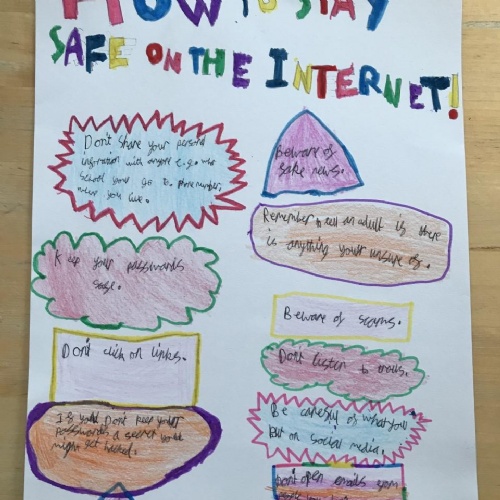 HOW TO STAY
SAFE ON THE INTERNET!
Don't share your personal
information with anyone e.g. what
School you go to, phone number,
where you live.
Beware of
fake news.
Remember to tell an adult if there
is anything your unsure of.
Keep your passwords
safe.
Beware of scams.
Don't click on links.
Don't listen to trolls.
Be careful of what you
put on social media.
If you Don't keep your
passwords a secret you
might get hacked.
Don't open emails from